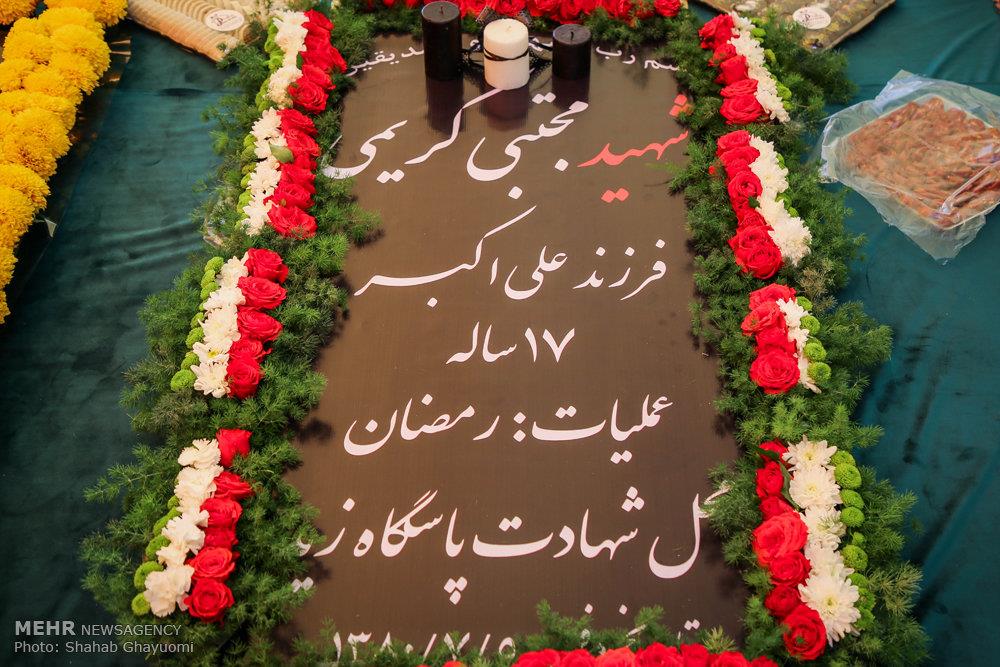 شهید مجتبی کریمی
فرزند علی اکبر
۱۷ ساله
عملیات: رمضان
شهادت پاسگاه
MEHR NEWSAGENCY
Photo: Shahab Ghayuomi